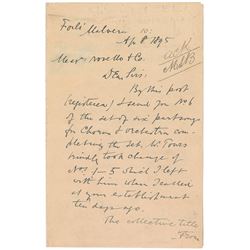 Forli Malvern
Ap 8 1895
Messrs Novello & Co.
Dear Sirs.
By this post
(registered) I send for No 6
of the set of six part songs
for Chorus & Orchestra com-
pleting the set. Mr Jonas
kindly took charge of
Nos 1-5 which I left
with him when I called
at your establishment
ten days ago.
The collective title